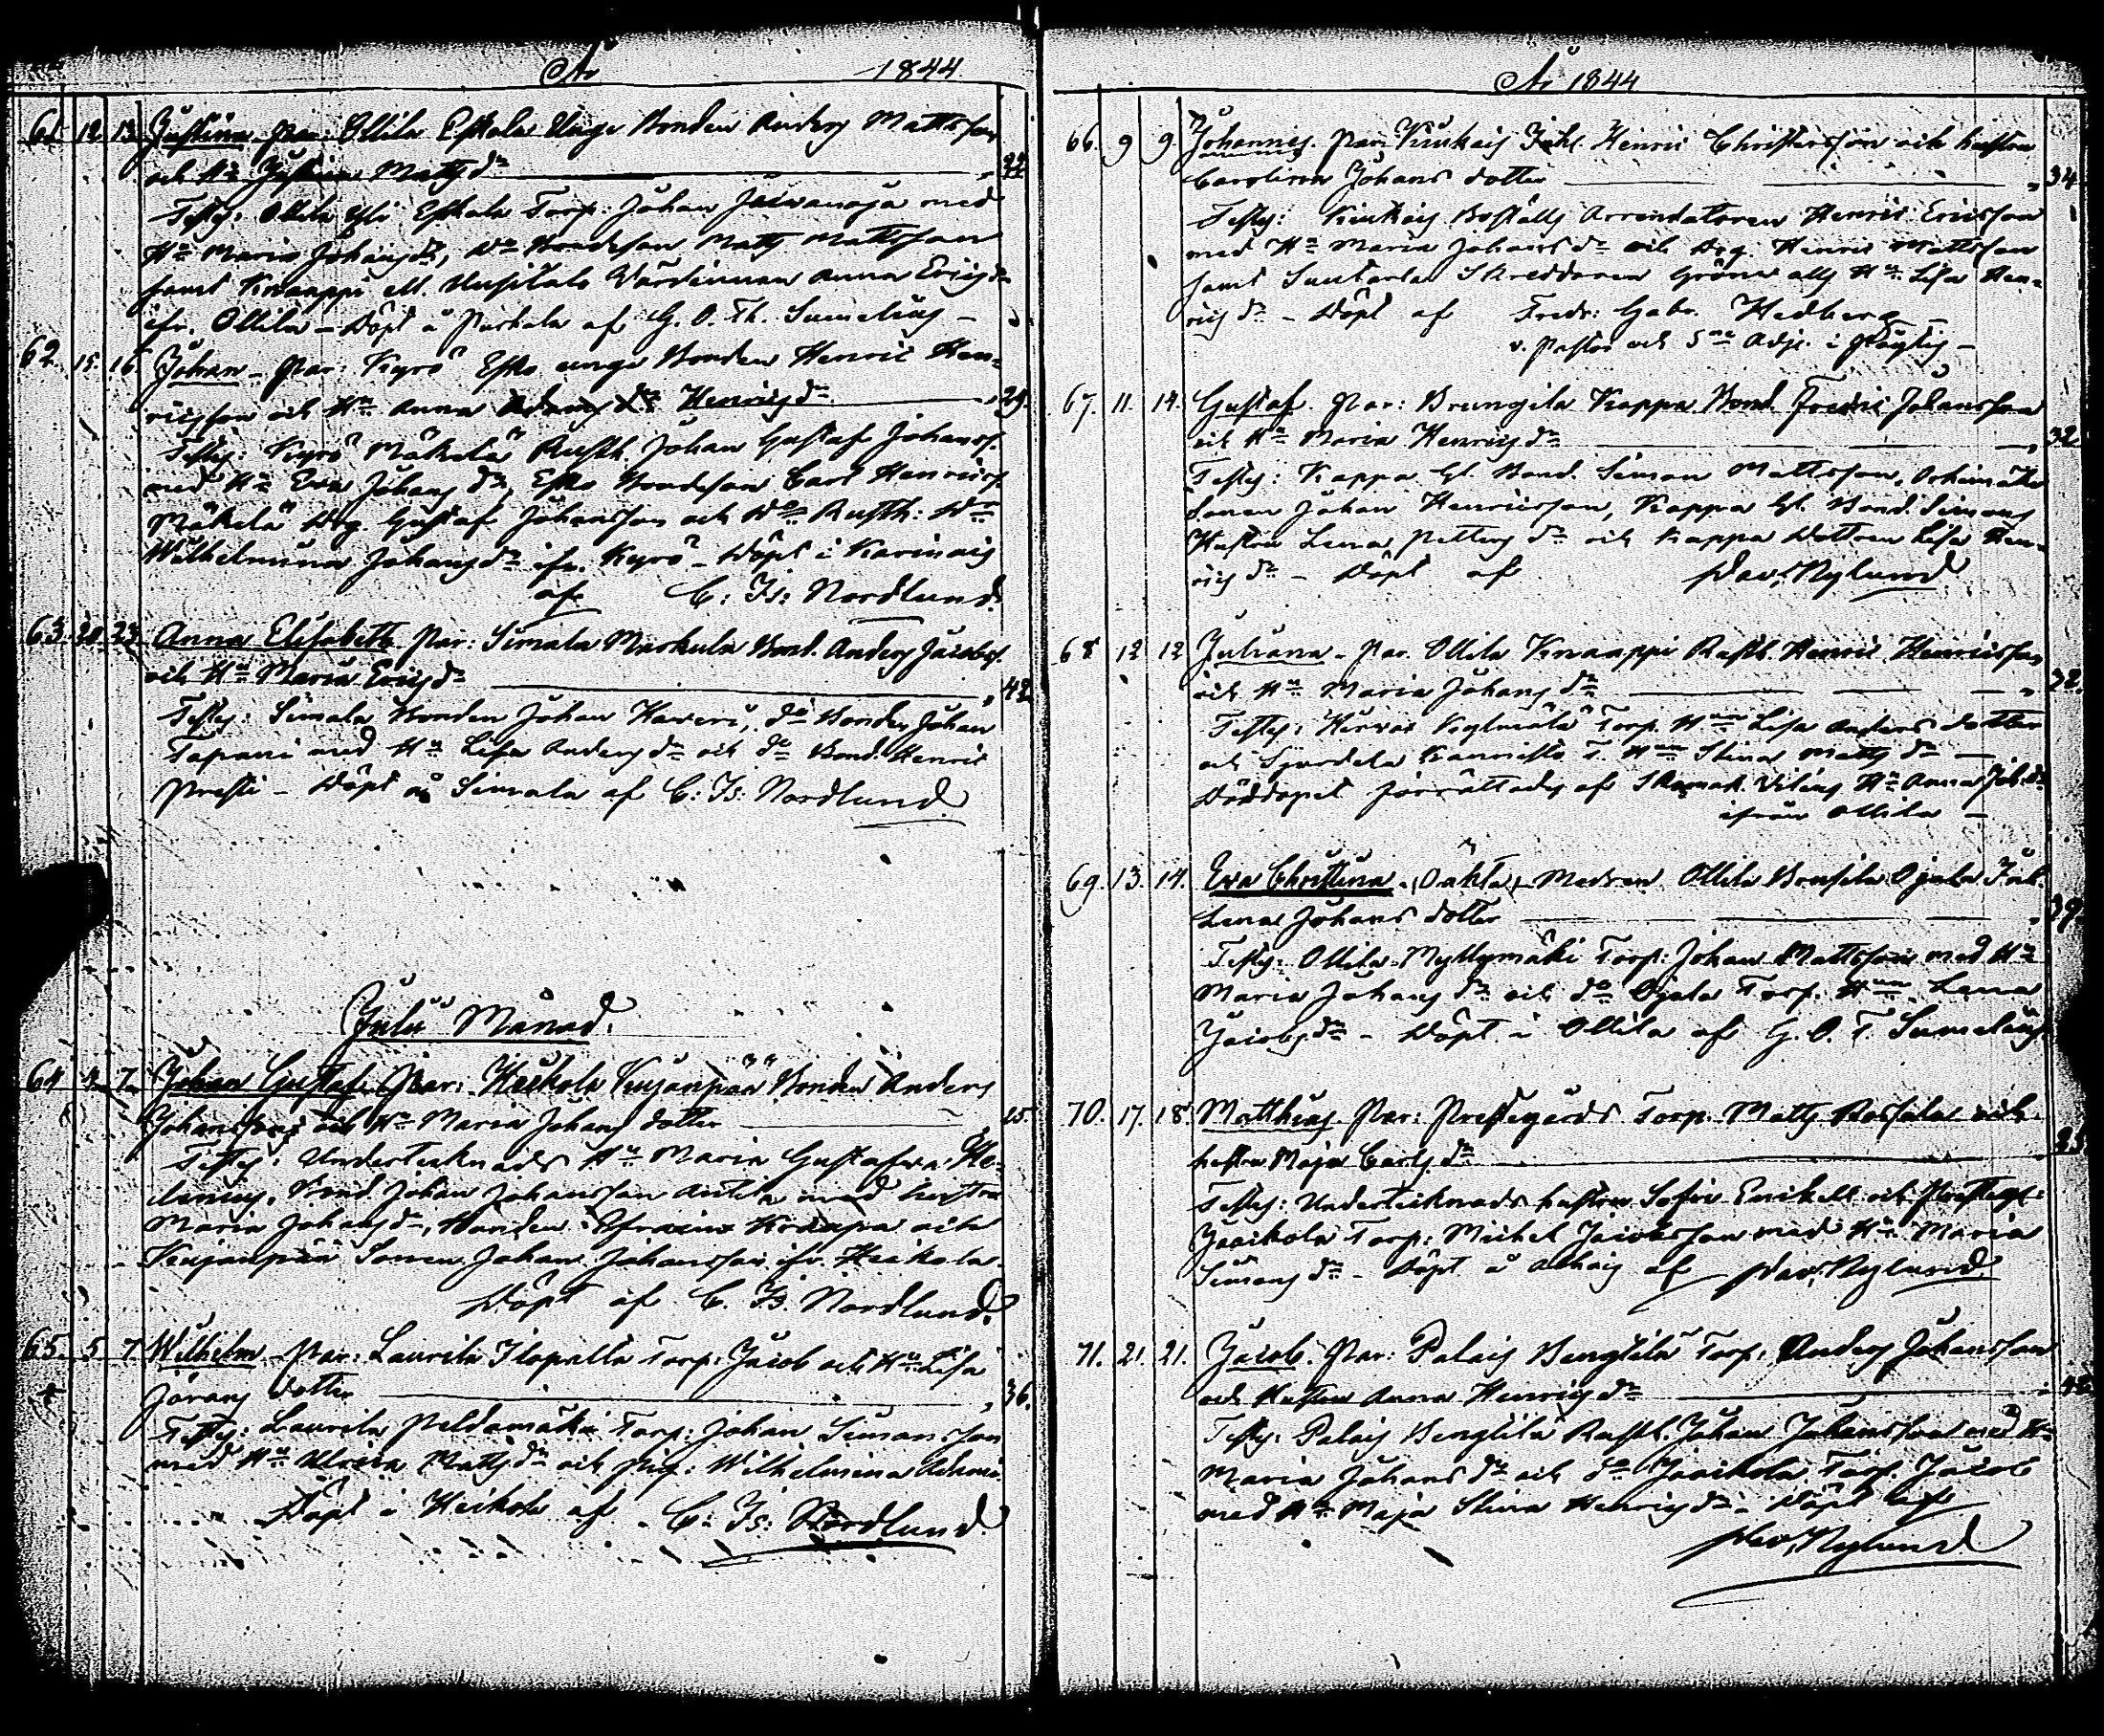 År 1844
61. 12 13 Justina. Par: Ollila Eskola Unge Bonden Anders Mattsson
och Hu Justina Matts dr 22
Testes: Ollila Yli Eskola Torp: Johan Juvanoja med
Hu Maria Johans dr, Do Bondeson Matts Mattsson
samt Knaappi ell. Uusitalo Värdinnan Anna Erics dr
ifr. Ollila - Döpt å Puskala af G. O. Th. Sumelius -
62. 15. 16. Johan - Par: Kyrö Esko unge Bonden Henric Hen-
ricsson och Hu Anna Henrics dr 29.
Testes: Kyrö Mäkelä Rusth. Johan Gustaf Johanss.
med Hu Eva Johans dr, Esko Bondeson Carl Henricss.
Mäkelä Drg. Gustaf Johansson och Do Rusth: Dr
Wilhelmina Johans dr ifr. Kyrö - Döpt i Karinais
af C: Is: Nordlund.
63. 20. 23. Anna Elisabeth. Par: Simala Markula Bond. Anders Jacobss.
och Hu Maria Erics dr 42
Testes: Simala Bonden Johan Haveri, do Bonden Johan
Tapani med Hu Lisa Anders dr och do Bond. Henric
Pressi - Döpt å Simala af C: Is: Nordlund
Julii Månad.
64 4 7 Johan Gustaf. Par: Heikola Kujanpää Bonden Anders
Johansson och Hu Maria Johans dotter 25.
Testes: Undertecknads Hu Maria Gustafva
Bond. Johan Johansson Anttila med hustru
Maria Johans dr, Bonden Efraim och
Kujanpää Sonen Johan Johansson ifr. Heikola.
Döpt af C. Is. Nordlund.
65. 5 7 Wilhelm - Par: Laurila Torp: Jacob och Hu Lisa
Görans dotter 36.
Testes: Laurila Peldomäki Torp: Johan Simonsson
med Hu Ulrica Matts dr och Pig: Wilhelmina
Döpt i Heikola af C: Is: Nordlund
År 1844
66. 9 9. Johannes. Par: Kiukais Inh. Henric Christersson och hustru
Carolina Johans dotter 34
Testes: Kiukais Boställs Arrendatoren Henric Ericsson
med Hu Maria Johans dr och Drg. Henric Mattsson
samt Skreddaren Gröns Hu Lisa Hen-
rics dr - Döpt af Fredr: Gabr. Hedberg -
v. Pastor och Adj. i Pöytis -
67. 11. 14. Gustaf. Par: Brungila Kappa Bond. Fredric Johansson
och Hu Maria Henrics dr 32
Testes: Kappa Gl. Bond. Simon Mattsson,
Sonen Johan Henricsson, Kappa Gl. Bond. Simons
Hustru Lena Petters dr och Kappa Dottren Lisa Hen-
rics dr - Döpt af Dav: Nylund
68 12 12 Juliana - Par. Ollila Knaappi Rusth. Henric Henricsson
och Hu Maria Johans dr 32.
Testes: Hirvas Kylmälä Torp. Hun Lisa Anders dotter
och T. Hun Stina Matts dr -
Döddopet förrättades af Hu Anna Joh. dr
ifrån Ollila -
69. 13. 14. Eva Christina. (Oäkta) Modren Ollila Ojala Inh.
Lena Johans dotter 39
Testes: Ollila Myllymäki Torp: Johan Mattsson med Hu
Maria Johans dr och do Ojala Torp. Hun Lena
Jacobs dr - Döpt i Ollila af G. O. T. Sumelius
70. 17. 18. Matthias. Par: Prestegårds Torp: Matts och
hustru Maja Carls dr
Testes: Undertecknads hustru Sofia Enckell och Prestegs:
Jaakola Torp: Michel Jacobsson med Hu Maria
Simons dr - Döpt å af Dav. Nylund.
71. 21. 21. Jacob. Par: Palais Bengtilä Torp: Anders Johansson
och Hustru Anna Henrics dr
Testes: Palais Bengtilä Rusth. Johan Johansson med Hu
Maria Johans dr och do Jaakola Torp. Jacob
med Hu Maja Stina Henrics dr - Döpt af
Dav. Nylund